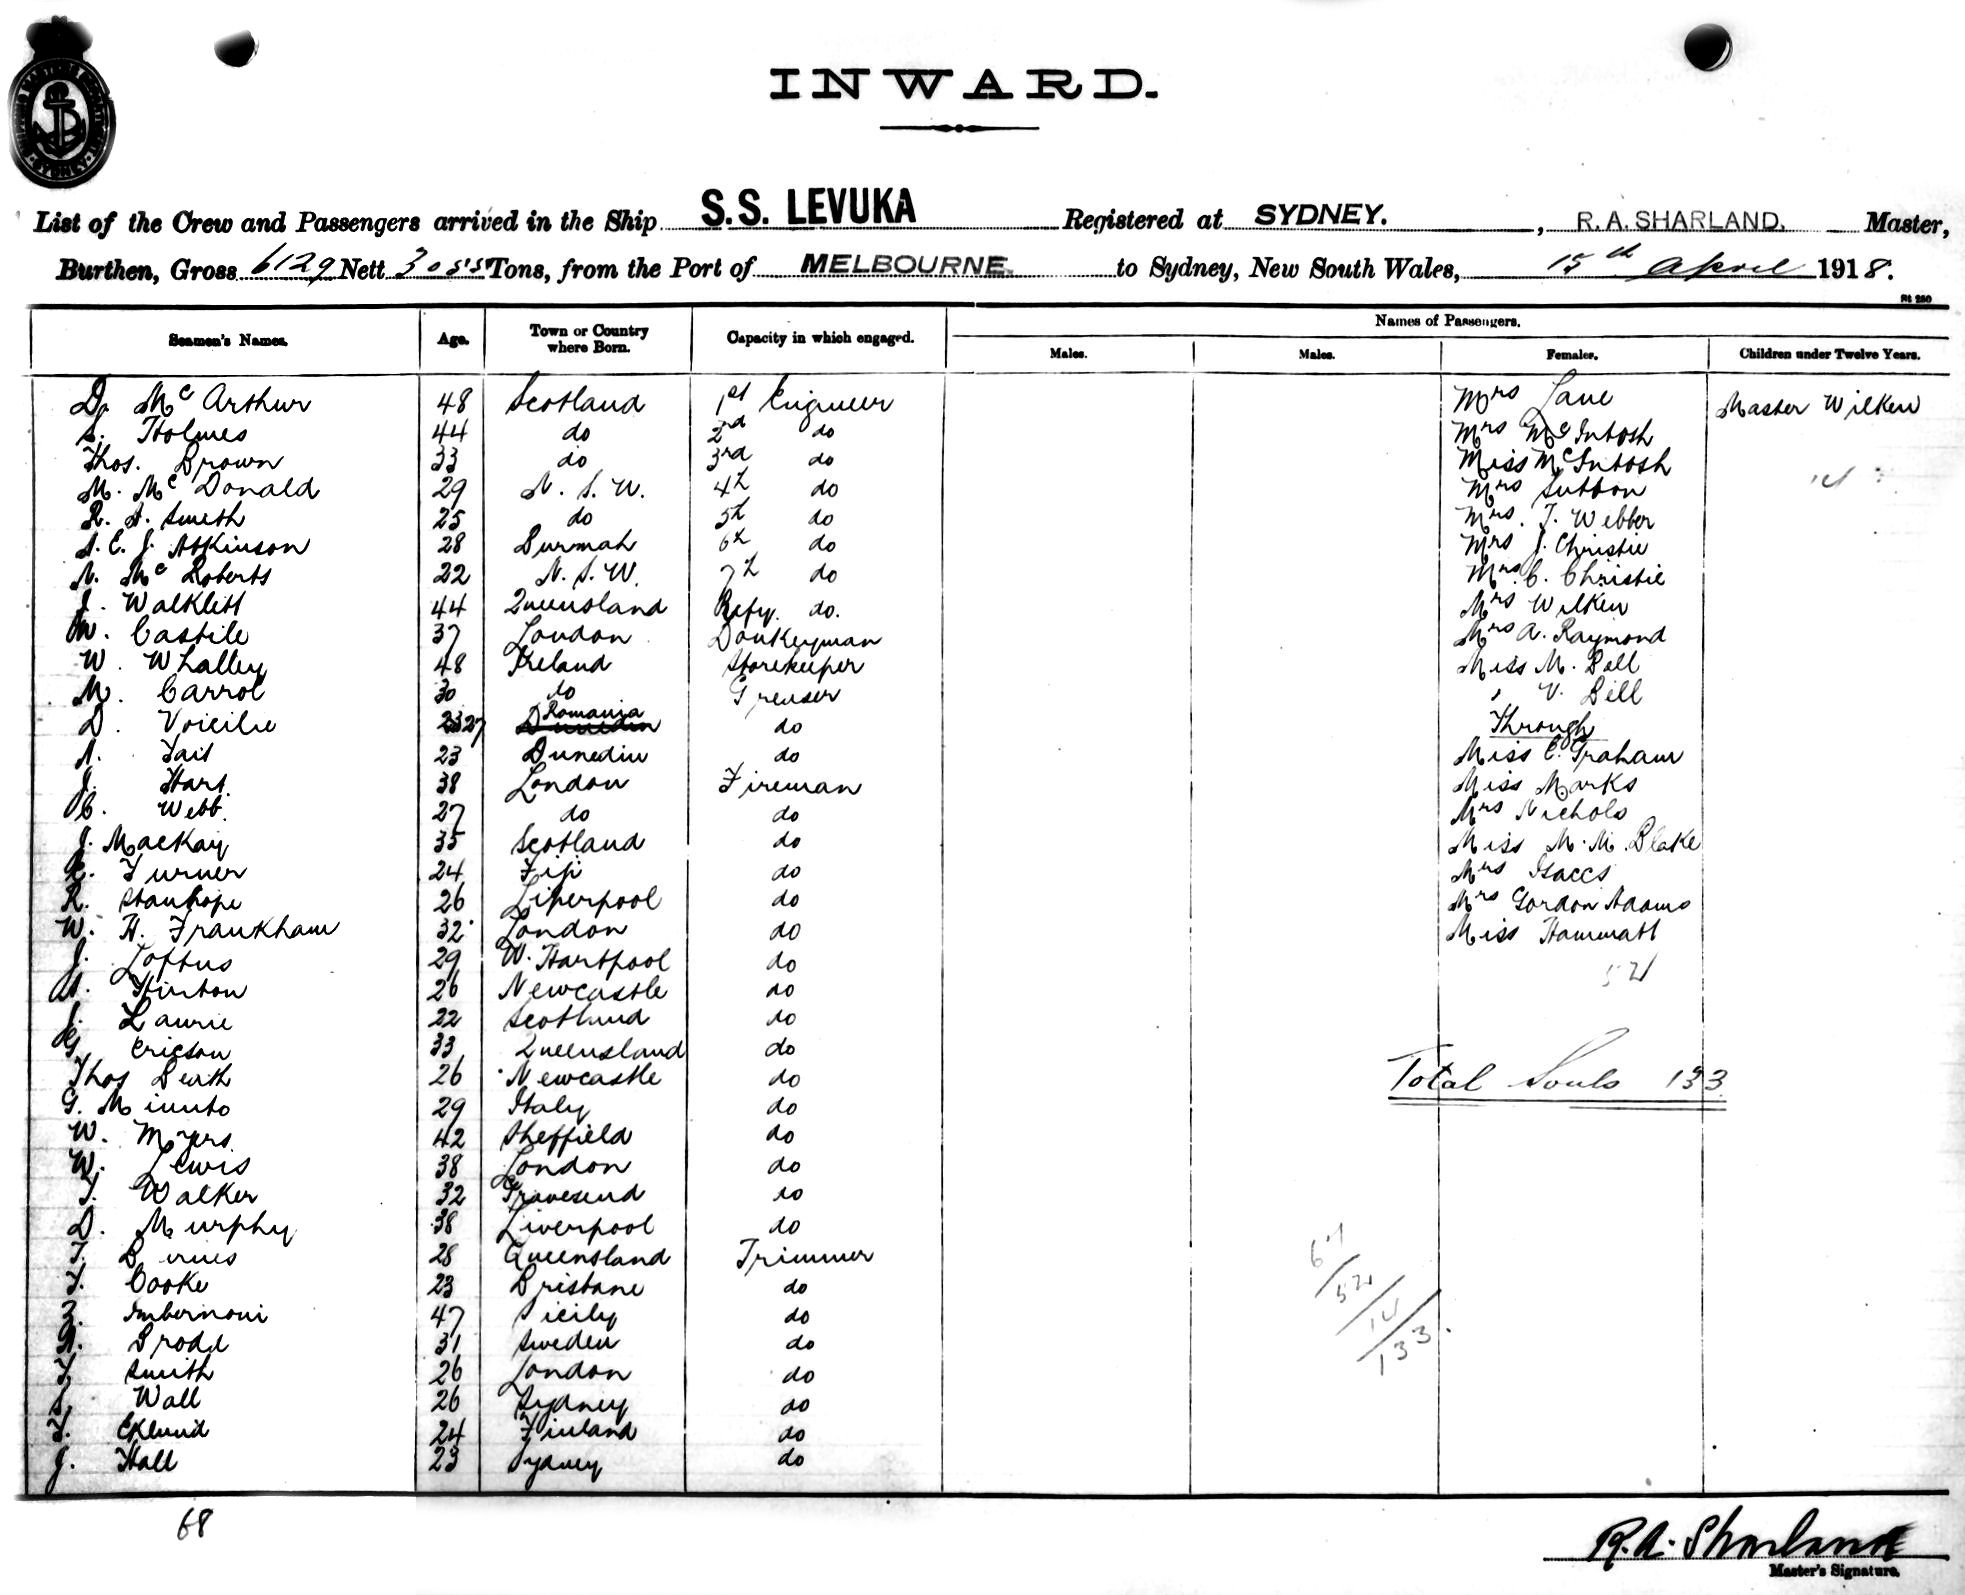 INWARD.
List of the Crew and Passengers arrived in the Ship S.S. LEVUKA Registered at SYDNEY. , R. A. SHARLAND. Master,
Burthen, Gross 6129 Nett Tons, from the Port of MELBOURNE. to Sydney, New South Wales, 15th April 1918.
St 250
Seamen's Names. Age. Town or Country where Born. Capacity in which engaged. Names of Passengers.
Males. Males. Females. Children under Twelve Years.
D. McArthur 48 Scotland 1st Engineer Mrs Lane Master Wilken
S. Holmes 44 do 2nd do Mrs McIntosh
Thos. Brown 33 do 3rd do Miss McIntosh
M. McDonald 29 N. S. W. 4th do Mrs Sutton
R. A. Smith 25 do 5th do Mrs. T. Webber
A. E. J. Atkinson 28 Burmah 6th do Mrs J. Christie
N. McRoberts 22 N. S. W. 7th do Mrs C. Christie
J. Walklitt 44 Queensland Refg. do. Mrs Wilken
W. Castile 37 London Donkeyman Mrs A. Raymond
W. Whalley 48 Ireland Storekeeper Miss M. Bell
M. Carrol 30 do Greaser " V. Bell
D. Voicilu 27 Romania do Through
A. Tait 23 Dunedin do Miss E. Graham
J. Hart. 38 London Fireman Miss Marks
C. Webb. 27 do do Mrs Nichols
J. Mackay 35 Scotland do Miss M. M. Blake
R. Turner 24 Fiji do Mrs Isaccs
R. Stanhope 26 Liverpool do Mrs Gordon Adams
W. H. Frankham 32 London do Miss Hammatt
J. Loftus 29 W. Hartpool do
A. Hinton 26 Newcastle do 52
J. Laurie 22 Scotland do
G. Ericson 33 Queensland do
Thos Beath 26 Newcastle do Total Souls 133
G. Minuto 29 Italy do
W. Myers 42 Sheffield do
W. Lewis 38 London do
T. Walker 32 Gravesend do
D. Murphy 38 Liverpool do
T. Burns 28 Queensland Trimmer
T. Cooke 23 Brisbane do
Imbernoni 47 Sicily do
A. Brodd 31 Sweden do
T. Smith 26 London do
S. Wall 26 Sydney do
T. Eklund 24 Finland do
J. Hall 23 Sydney do
52
14
133.
68
R. A. Sharland
Master's Signature.